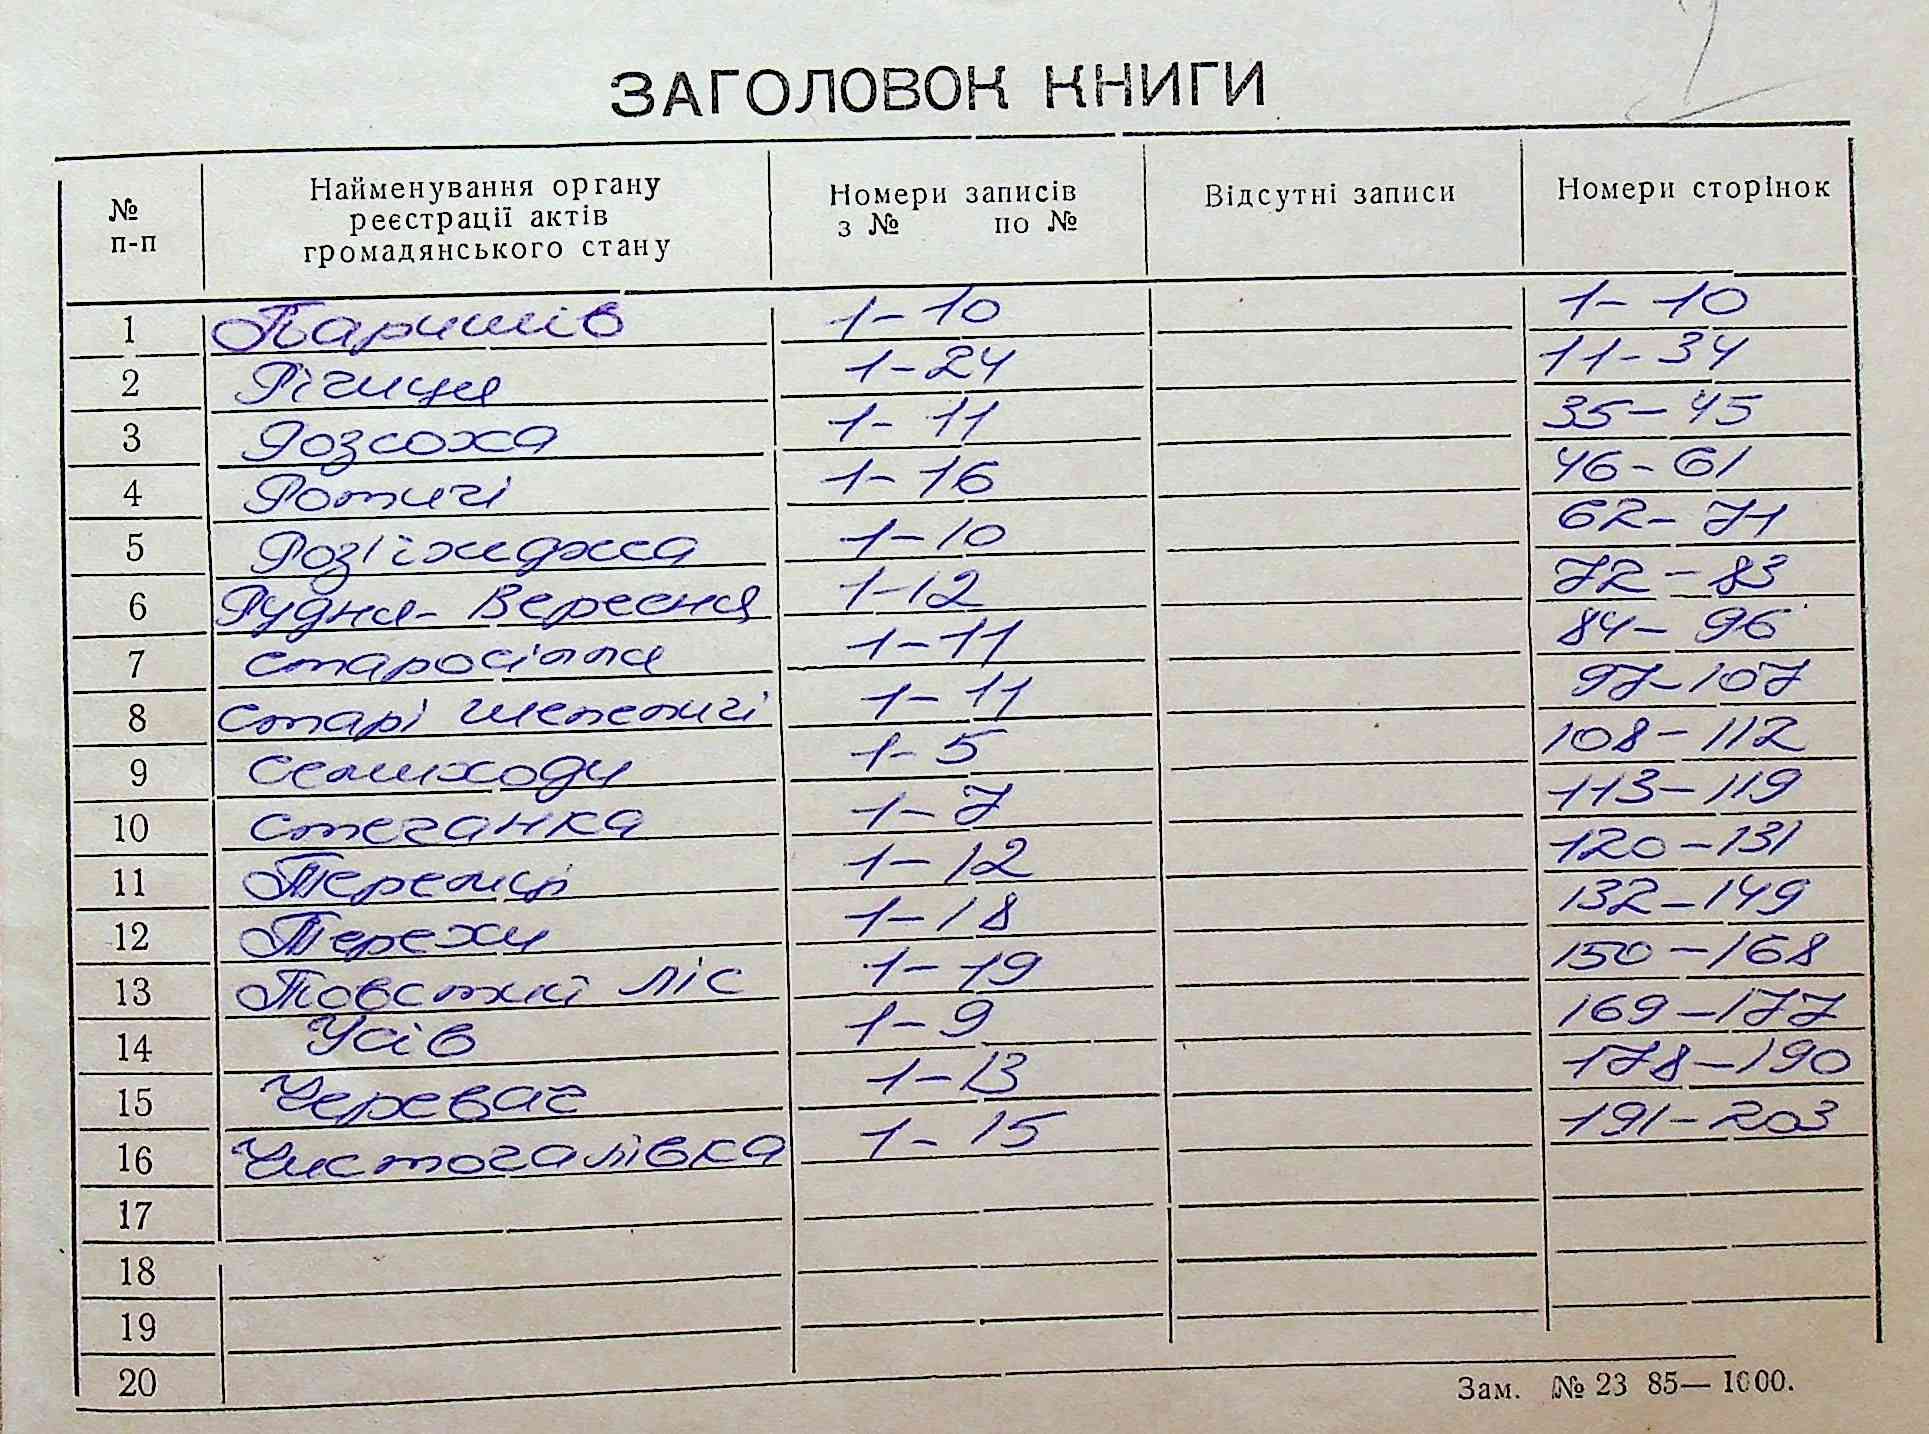 2
ЗАГОЛОВОК КНИГИ
№ п-п
Найменування органу реєстрації актів громадянського стану
Номери записів з № по №
Відсутні записи
Номери сторінок
1 Паришів 1-10 1-10
2 Річиця 1-24 11-34
3 Розсоха 1-11 35-45
4 Ротичі 1-16 46-61
5 Роз'їжджа 1-10 62-71
6 Рудня-Вересня 1-12 72-83
7 Старосілля 1-11 84-96
8 Старі Шепеличі 1-11 97-107
9 Семиходи 1-5 108-112
10 Стечанка 1-7 113-119
11 Теремці 1-12 120-131
12 Терехи 1-18 132-149
13 Товстий ліс 1-19 150-168
14 Усів 1-9 169-177
15 Черевач 1-13 178-190
16 Чистогалівка 1-15 191-203
17
18
19
20
Зам. № 23 85—1000.